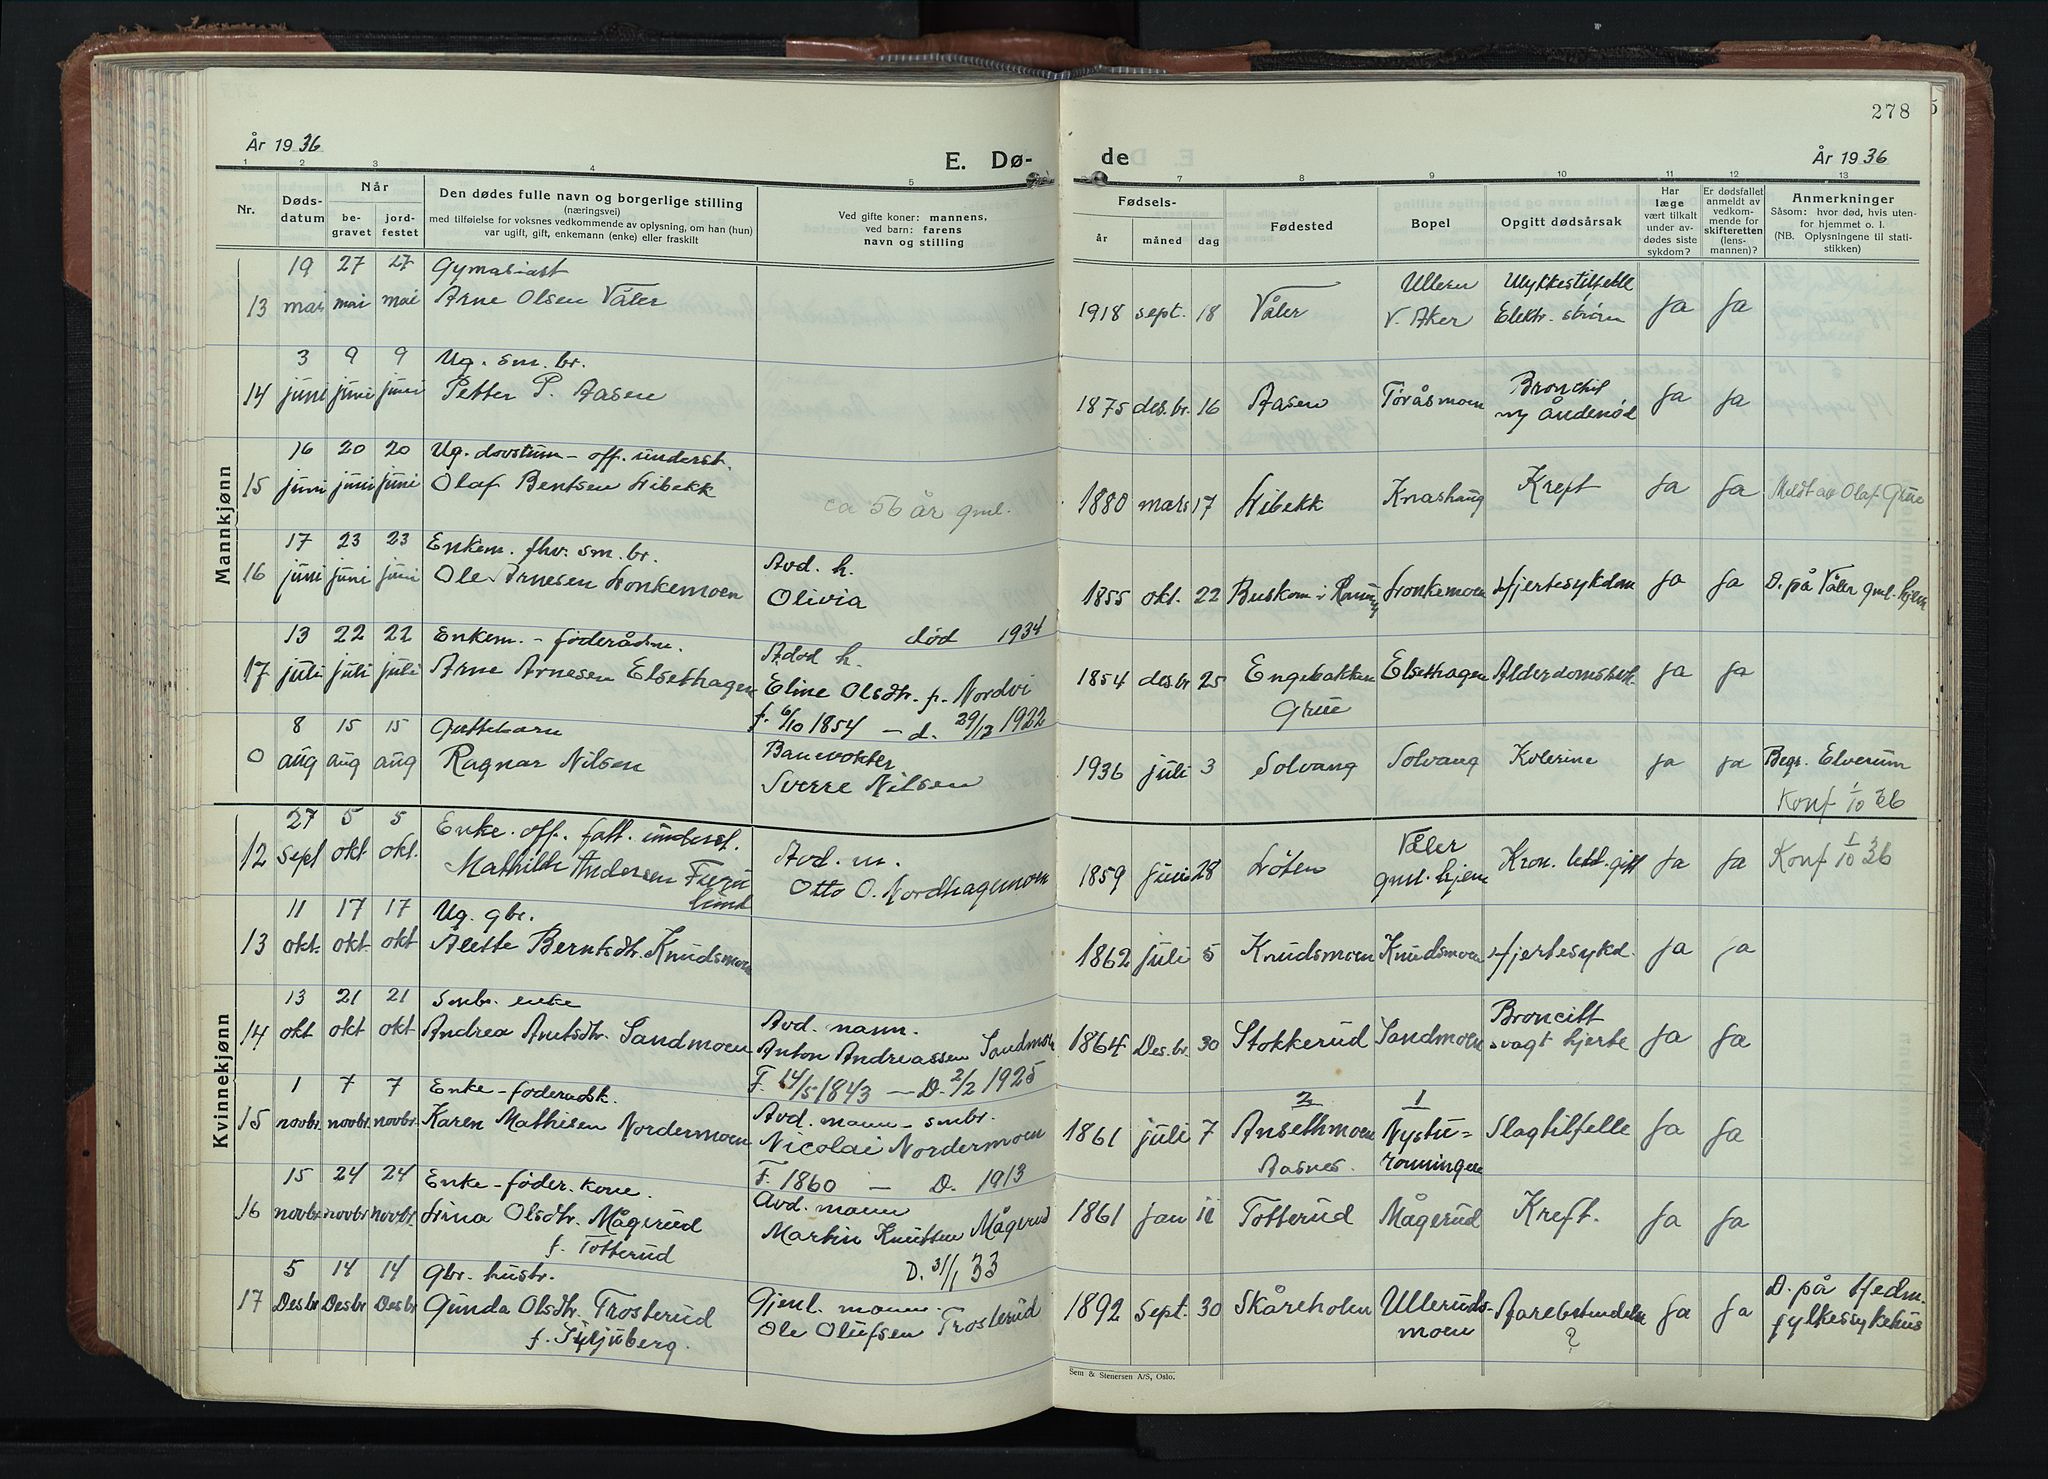 278
År 1936
E. Dø-
de
År 1936
1 2 3 4 5 7 8 9 10 11 12 13
Nr.
Døds-
datum
Når
be-
gravet
jord-
festet
Den dødes fulle navn og borgerlige stilling
(næringsvei)
med tilføielse for voksnes vedkommende av oplysning, om han (hun)
var ugift, gift, enkemann (enke) eller fraskilt
Ved gifte koner: mannens,
ved barn: farens
navn og stilling
Fødsels-
år måned dag
Fødested
Bopel
Opgitt dødsårsak
Har
læge
vært tilkalt
under av-
dødes siste
sykdom?
Er dødsfallet
anmeldt av
vedkom-
mende for
skifteretten
(lens-
mannen)?
Anmerkninger
Såsom: hvor død, hvis uten-
for hjemmet o. l.
(NB. Oplysningene til stati-
stikken)
Mannkjønn
19 27 27 Gymasiast Ullern Ulykkestilfelle
13 mai mai mai Arne Olsen Våler 1918 sept. 18 Våler V. Aker Elektr. strøm Ja Ja
3 9 9 Ug. sm. br. Bronchit
14 juni juni juni Petter P. Aasen 1875 des.br. 16 Aasen Toråsmoen ny Åndenød Ja Ja
16 20 20 Ug. døvstum - off. underst.
15 juni juni juni Olaf Bentsen Libekk ca 56 år gml. 1880 mars 17 Libekk Knashaug Kreft Ja Ja Meldt av Olaf Grue
17 23 23 Enkem. fhv. sm. br. Avd. h.
16 juni juni juni Ole Arnesen Lonkemoen Olivia 1855 okt. 22 Buskom i Lonkemoen Hjertesykdom Ja Ja D. på Våler gml. hjem
død 1934
13 22 22 Enkem. - føderådm. Avd. h.
17 juli juli juli Arne Arnesen Elsethagen Eline Olsdtr. f. Nordvi 1854 des.br 25 Engebakken Elsethagen Alderdomssvek. Ja Ja
f. 6/10 1854 - d. 29/12 1922 Grue
8 15 15 Guttebarn Banevokter
0 aug aug aug Ragnar Nilsen Sverre Nilsen 1936 juli 3 Solvang Solvang Kolerine Ja Ja Begr. Elverum
Konf 1/10 36
Kvinnekjønn
27 5 5 Enke. off. fatt. underst. Avd. m. Våler
12 sept okt okt. Mathilde Andersen Furu Otto O. Nordhagemoen 1859 juni 28 Løten gml. hjem Kron. ledd.gikt Ja Ja Konf 1/10 36
lund
11 17 17 Ug. gbr.
13 okt. okt. okt. Alette Berntsdtr. Knudsmoen 1862 juli 5 Knudsmoen Knudsmoen Hjertesykd. Ja Ja
13 21 21 Smbr. enke Avd. mann. Broncitt
14 okt okt okt Andrea Amtsdtr. Sandmoen Anton Andreassen Sandmoen 1864 Des.br. 30 Stokkerud Sandmoen svagt hjerte Ja Ja
F. 14/5 1843 - D. 2/2 1925
1 7 7 Enke - føderådsk. Avd. mann - smbr. 2 1
15 novbr. novbr. novbr. Karen Mathisen Nordermoen Nicolai Nordermoen 1861 juli 7 Ansethmoen Nystu= Slagtilfelle Ja Ja
F. 1860 - D. 1913 Aasnes. rønningen
15 24 24 Enke - føder. kone. Avd. mann
16 novbr. novbr. novbr. Lina Olsdtr. Mågerud Martin Knutsen Mågerud 1861 jan 11 Totterud Mågerud Kreft. Ja Ja
f. Totterud D. 31/1 33
5 14 14 Gbr. hustr. Gjenl. mann. D. på Hedm.
17 Desbr Desbr Desbr Gunda Olsdtr. Trosterud Ole Olufsen Trosterud 1892 sept. 30 Skåreholen Ulleruds- Aarebetendelse Ja Ja fylkessykehus
f. Syljuberg. moen ?
Sem & Stenersen A/S, Oslo.